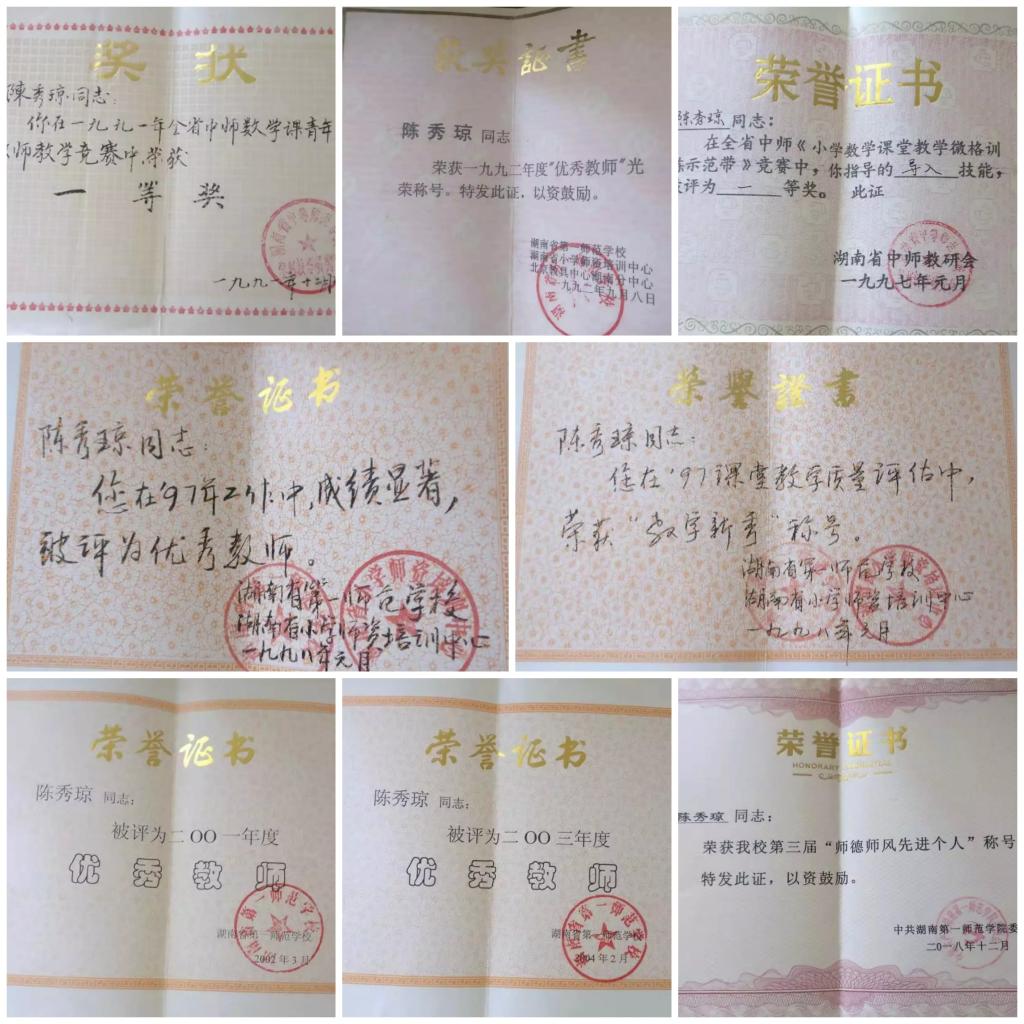 奖状
陈秀琼同志:
你在一九九一年全省中师数学课青年
师教学竞赛中,荣获
一等奖
一九九一年十二月
获奖証書
陈秀琼 同志
荣获一九九二年度"优秀教师"光
荣称号。特发此证,以资鼓励。
湖南省第一师范学校
湖南省小学师资培训中心
一九九二年九月八日
荣誉证书
陈秀琼 同志:
在全省中师《小学数学课堂教学微格训
练示范带》竞赛中,你指导的 导入 技能,
被评为 一 等奖。 此证
湖南省中师教研会
一九九七年元月
荣誉证书
陈秀琼同志:
您在'97年工作中,成绩显著,
被评为优秀教师。
湖南省第一师范学校
湖南省小学师资培训中心
一九九八年元月
荣譽證書
陈秀琼同志:
您在'97课堂教学质量评估中,
荣获"教学新秀"称号。
湖南省第一师范学校
湖南省小学师资培训中心
一九九八年元月
荣誉证书
陈秀琼 同志:
被评为二OO一年度
优秀教师
湖南省第一师范学校
2002年3月
荣誉证书
陈秀琼 同志:
被评为二OO三年度
优秀教师
湖南省第一师范学校
2004年2月
荣誉证书
HONORARY CREDENTIAL
陈秀琼 同志:
荣获我校第三届"师德师风先进个人"称号
特发此证,以资鼓励。
中共湖南第一师范学院委
二〇一八年十二月